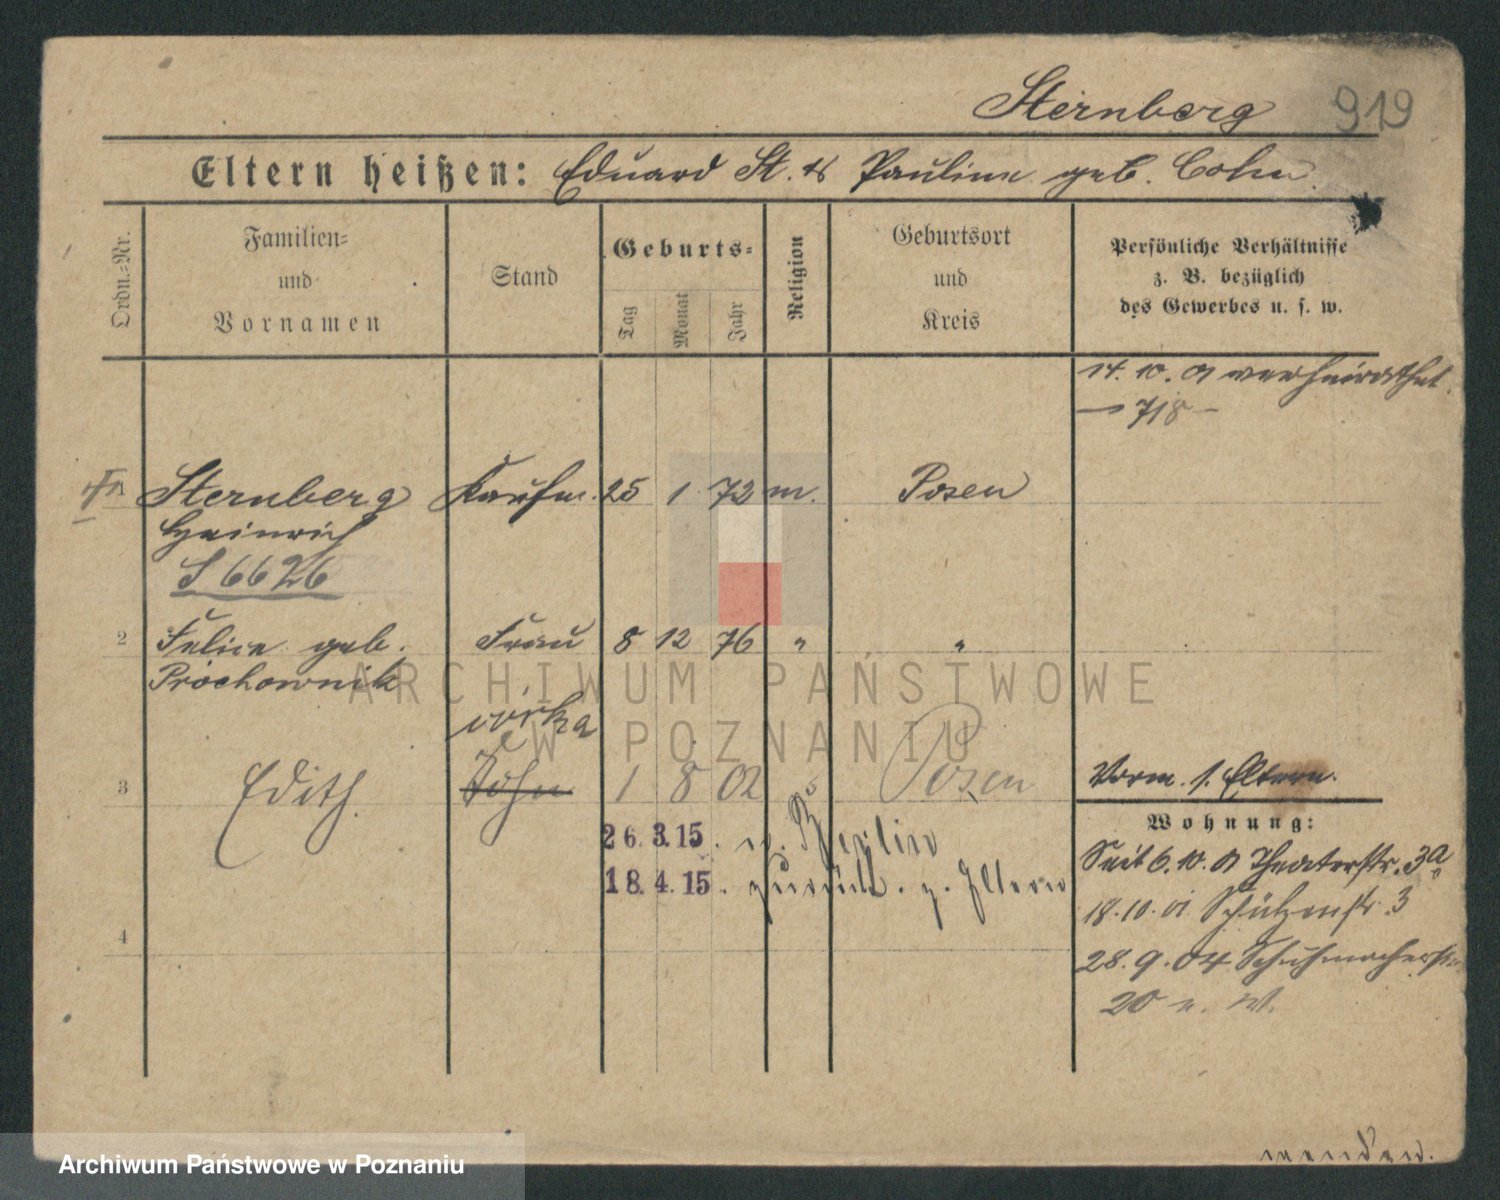 Sternberg 919
Eltern heißen: Eduard St. & Pauline geb. Cohn.
Ordn.=Nr.
Familien=
und
Vornamen
Stand
Geburts=
Tag
Monat
Jahr
Religion
Geburtsort
und
Kreis
Persönliche Verhältnisse
z. B. bezüglich
des Gewerbes u. s. w.
14. 10. 01 verheirathet.
718
Sternberg Kaufm. 25 1 72 m. Posen
Heinrich
S 6626
2 Felice geb. Frau 8 12 76 " "
Prochownik
córka
3 Edith. Sohn 1 8 02 Posen
Vorm. s. Eltern.
26. 3. 15. n. Berlin
18. 4. 15. zurück. z. Eltern
Wohnung:
Seit 6. 10. 01 Theaterstr. 3a
18. 10. 01 Schützenstr. 3
28. 9. 04 Schuhmacherstr.
20 n. W.
4
wenden.
ARCHIWUM PAŃSTWOWE
W POZNANIU
Archiwum Państwowe w Poznaniu